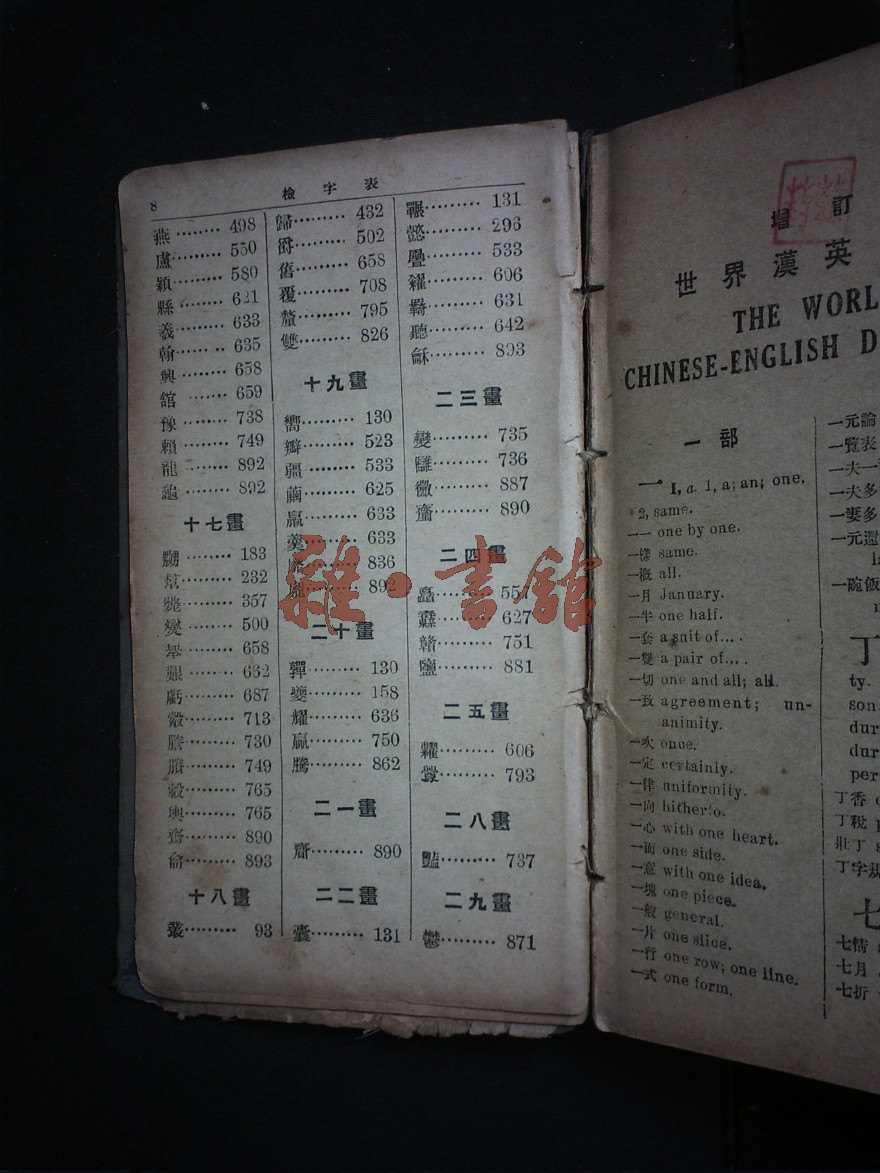 8
檢字表
燕 ········ 498
盧 ········ 550
穎 ········ 580
縣 ········ 621
羲 ········ 633
翰 ········ 635
興 ········ 658
舘 ········ 659
豫 ········ 738
賴 ········ 749
龍 ········ 892
龜 ········ 892
十七畫
嬲 ········ 183
幫 ········ 232
斃 ········ 357
燮 ········ 500
舉 ········ 658
艱 ········ 662
虧 ········ 687
········ 713
謄 ········ 730
········ 749
轂 ········ 765
輿 ········ 765
齋 ········ 890
龠 ········ 893
十八畫
叢 ········ 93
歸 ········ 432
爵 ········ 502
舊 ········ 658
覆 ········ 708
釐 ········ 795
雙 ········ 826
十九畫
嚮 ········ 130
瓣 ········ 523
疆 ········ 533
繭 ········ 625
羸 ········ 633
羹 ········ 633
········ 836
········ 892
二十畫
········ 130
夔 ········ 158
耀 ········ 636
贏 ········ 750
騰 ········ 862
二一畫
齎 ········ 890
二二畫
囊 ········ 131
囅 ········ 131
懿 ········ 296
疊 ········ 533
糴 ········ 606
羇 ········ 631
聽 ········ 642
龢 ········ 893
二三畫
變 ········ 735
讎 ········ 736
黴 ········ 887
齏 ········ 890
二四畫
矗 ········ 557
········ 627
贛 ········ 751
鹽 ········ 881
二五畫
糶 ········ 606
釁 ········ 793
二八畫
豔 ········ 737
二九畫
鬱 ········ 871
雜·書館
增訂
世界漢英
THE WORL
CHINESE-ENGLISH D
一部
一 1, a. 1, a; an; one.
2, same.
一一 one by one.
一樣 same.
一概 all.
一月 January.
一半 one half.
一套 a suit of....
一雙 a pair of....
一切 one and all; all.
一致 agreement; un-
animity.
一次 once.
一定 certainly.
一律 uniformity.
一向 hitherto.
一心 with one heart.
一面 one side.
一意 with one idea.
一塊 one piece.
一般 general.
一片 one slice.
一行 one row; one line.
一式 one form.
一元論
一覽表
一夫一
一夫多
一妻多
一元還
la
一碗飯
丁
ty.
son.
dur
dur
per
丁香
丁稅
壯丁
丁字規
七
七情
七月
七折